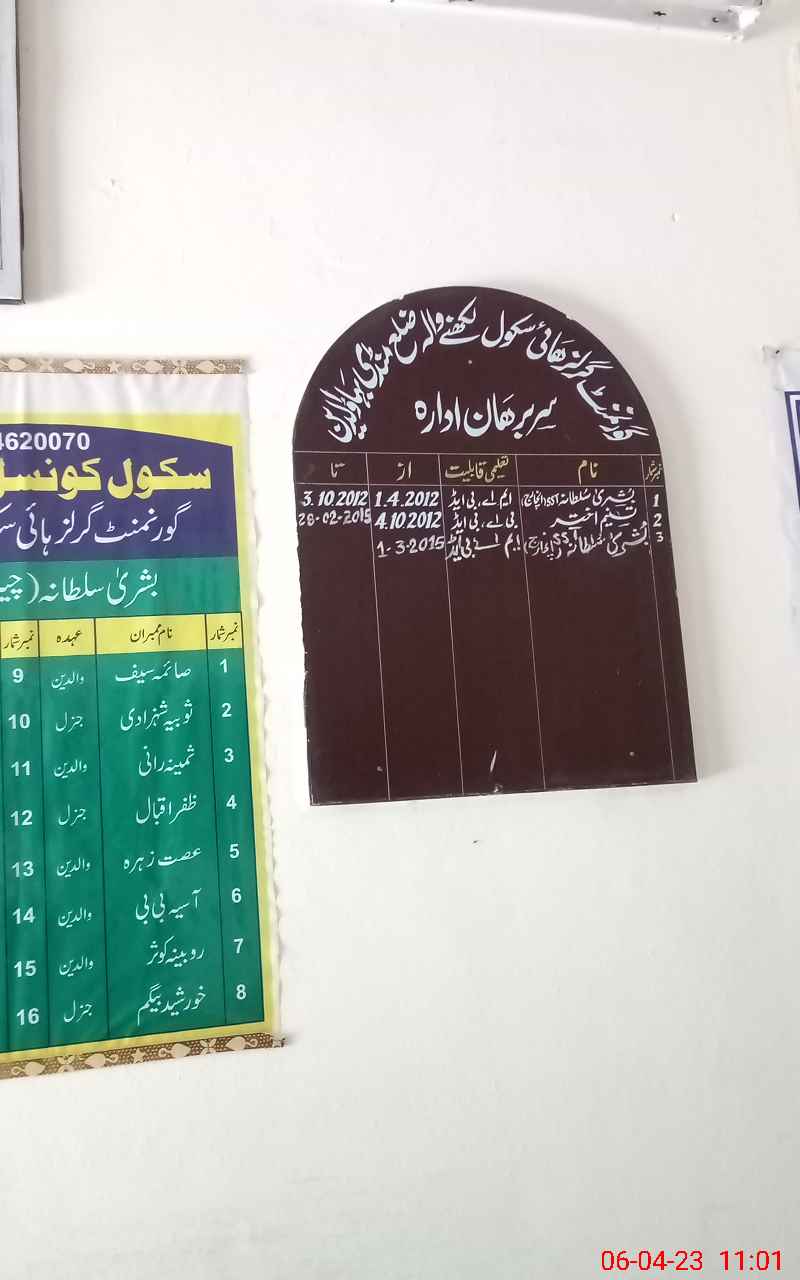 گورنمنٹ گرلز ہائی سکول لکھنے والہ ضلع منڈی بہاؤالدین
سربرھان ادارہ
نمبر شمار نام تعلیمی قابلیت از تا
1 بشریٰ سلطانہ SST (انچارج) ایم اے، بی ایڈ 1.4.2012 3.10.2012
2 تسنیم اختر بی اے، بی ایڈ 4.10.2012 28-02-2015
3 بشریٰ سلطانہ SST (انچارج) ایم اے بی ایڈ 1-3-2015
4620070
سکول کونسل
گورنمنٹ گرلز ہائی
بشریٰ سلطانہ (
نمبر شمار نام ممبران عہدہ نمبر شمار
1 صائمہ سیف والدین 9
2 ثوبیہ شہزادی جنرل 10
3 ثمینہ رانی والدین 11
4 ظفر اقبال جنرل 12
5 عصت زہرہ والدین 13
6 آسیہ بی بی والدین 14
7 روبینہ کوثر والدین 15
8 خورشید بیگم جنرل 16
06-04-23 11:01